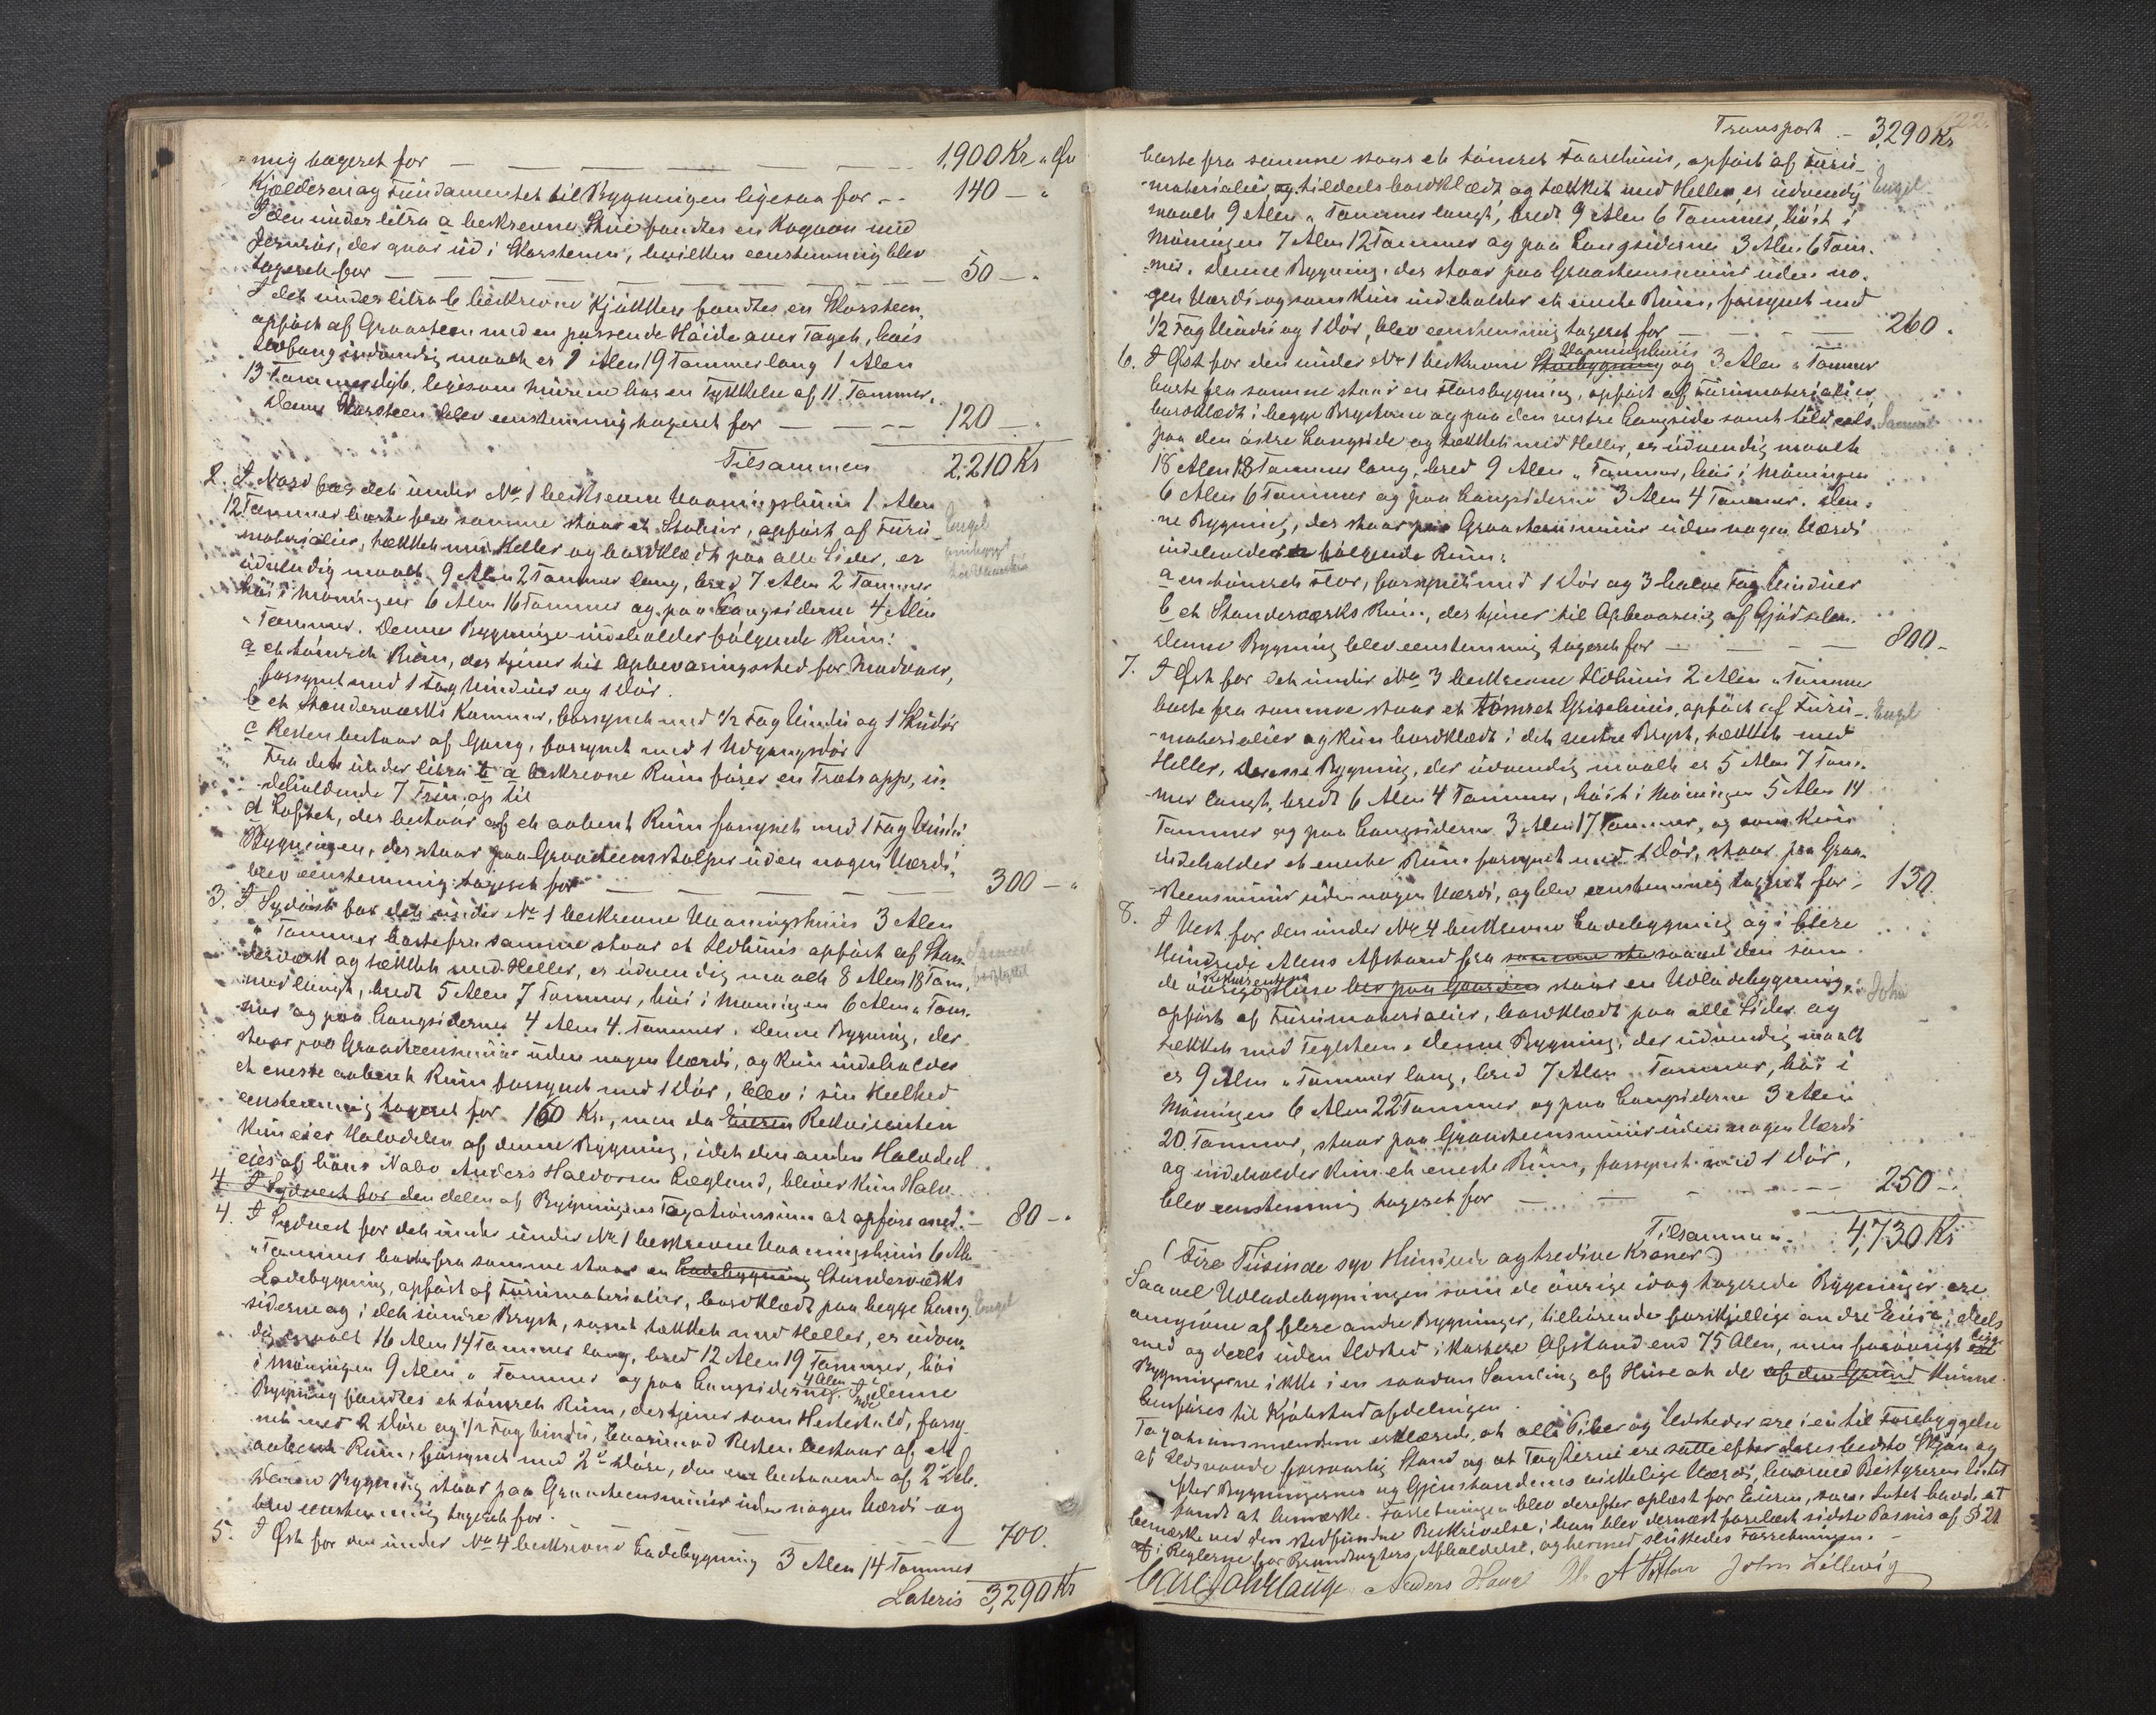 mig taxeret for — 1,900 Kr „ Øre
Kjælderen og Fundamentet til Bygningen ligesaa for — 140 — „
I den under litra a beskrevne Stue fandtes en Kogeovn med
Jernrør, der gaar ud i Skorstenen, hvilken eenstemmig blev
taxeret for — 50 — „
I det under litra b beskrevne Kjøkken fandtes en Skorsteen,
opført af Graasteen med en passende Høide over Taget, hvis
Omfang indvendig maalt er 1 Alen 19 Tommer lang 1 Alen
13 Tommer dyb, ligesom Murene har en Tykkelse af 11 Tommer.
Denne Skorsteen blev eenstemmig taxeret for — 120 — „
Tilsammen 2,210 Kr
2. I Nord for det under No 1 beskrevne Vaaningshuus 1 Alen
12 Tommer borte fra samme staar et Stabur, opført af Furu-
materialier, tækket med Heller og bordklædt paa alle Sider, er
udvendig maalt 9 Alen 2 Tommer lang, bred 7 Alen 2 Tommer
høi i Møningen 6 Alen 16 Tommer og paa Langsiderne 4 Alen
„ Tommer. Denne Bygning indeholder følgende Rum:
a et tømret Rum, der tjener til Opbevaringssted for Madvarer,
forsynet med 1 Fag Vinduer og 1 Dør.
b et Stenderværks Kammer, forsynet med 1/2 Fag Vindu og 1 Skudør
c Resten bestaar af Gang, forsynet med 1 Udgangsdør
Fra det under litra b a beskrevne Rum fører en Trætrappe, in-
deholdende 7 Trin, op til
d Loftet, der bestaar af et aabent Rum forsynet med 1 Fag Vindu.
Bygningen, der staar paa Graasteensstolper uden nogen Værdi,
blev eenstemmig taxeret for — 300 — „
3. I Sydøst for det under No 1 beskrevne Vaaningshuus 3 Alen
„ Tommer borte fra samme staar et Ildhuus opført af Sten-
derværk og tækket med Heller, er udvendig maalt 8 Alen 18 Tom-
mer langt, bredt 5 Alen 7 Tommer, høi i Møningen 6 Alen „ Tom-
mer og paa Langsiderne 4 Alen 4 Tommer. Denne Bygning, der
staar paa Graasteensmuur uden nogen Værdi, og kun indeholder
et eneste aabent Rum forsynet med 1 Dør, blev i sin Heelhed
eenstemmig taxeret for 160 Kr., men da Eieren Rekvirenten
kun eier Halvdelen af denne Bygning, idet den anden Halvdeel
eies af hans Nabo Anders Haldorsen Lægland, bliver kun Halv-
4. I Sydvest for den delen af Bygningens Taxationssum at opføre med — 80 — „
4. I Sydvest for det under No 1 beskrevne Vaaningshuus 6 Alen
„ Tommer borte fra samme staar en Ladebygning Stenderværks
Ladebygning, opført af Furumaterialier, bordklædt paa begge Lang-
siderne og i det søndre Bryst, samt tækket med Heller, er udven-
dig maalt 16 Alen 14 Tommer lang, bred 12 Alen 19 Tommer, høi
i Møningen 9 Alen „ Tommer og paa Langsiderne 4 Alen. I denne
Bygning fandtes et tømret Rum, der tjener som Hestestald, forsy-
net med 2 Døre og 1/2 Fag Vindu, hvorimod Resten bestaar af et
aabent Rum, forsynet med 2de Døre, den ene bestaaende af 2de Dele.
Denne Bygning staar paa Graasteensmuur uden nogen Værdi og
blev eenstemmig taxeret for — 700.
5. I Øst for den under No 4 beskrevne Ladebygning 3 Alen 14 Tommer
Lateris 3,290 Kr
Engel
Samuel
Engel
22.
Transport — 3,290 Kr
borte fra samme staar et tømret Faarehuus, opført af Furu-
materialier og tildeels bordklædt og tækket med Heller, er udvendig
maalt 9 Alen „ Tommer langt, bredt 9 Alen 6 Tommer, høit i
Møningen 7 Alen 12 Tommer og paa Langsiderne 3 Alen 6 Tom-
mer. Denne Bygning, der staar paa Graasteensmuur uden no-
gen Værdi og som kun indeholder et eneste Rum, forsynet med
1/2 Fag Vindu og 1 Dør, blev eenstemmig taxeret for — 260.
6. I Øst for den under No 1 beskrevne Stuebygning Vaaningshuus og 3 Alen „ Tommer
borte fra samme staar en Florsbygning, opført af Furumaterialier,
bordklædt i begge Brystene og paa den vestre Langside samt tildeels
paa den østre Langside og tækket med Heller, er udvendig maalt
18 Alen 18 Tommer lang, bred 9 Alen „ Tommer, høi i Møningen
6 Alen 6 Tommer og paa Langsiderne 3 Alen 4 Tommer. Den-
ne Bygning, der staar paa Graasteensmuur uden nogen Værdi
indeholder følgende Rum:
a en tømret Flor, forsynet med 1 Dør og 3 halve Fag Vinduer
b et Stenderværks Rum, der tjener til Opbevaring af Gjødselen.
Denne Bygning blev eenstemmig taxeret for — 800 —
7. I Øst for det under No 3 beskrevne Ildhuus 2 Alen „ Tommer
borte fra samme staar et tømret Grisehuus, opført af Furu-
materialier og kun bordklædt i det vestre Bryst, tækket med
Heller. Denne Bygning, der udvendig maalt er 5 Alen 7 Tom-
mer langt, bredt 6 Alen 4 Tommer, høit i Møningen 5 Alen 14
Tommer og paa Langsiderne 3 Alen 17 Tommer, og som kun
indeholder et eneste Rum forsynet med 1 Dør, staar paa Graa-
steensmuur uden nogen Værdi, og blev eenstemmig taxeret for — 130.
8. I Vest for den under No 4 beskrevne Ladebygning og i flere
Hundrede Alens Afstand fra samme sta saavel den som
de øvrige Rekvirentens Huse her paa Gaarden staar en Udladebygning,
opført af Furumaterialier, bordklædt paa alle Sider og
tækket med Teglsteen. Denne Bygning, der udvendig maalt
er 9 Alen „ Tommer lang, bred 7 Alen „ Tommer, høi i
Møningen 6 Alen 22 Tommer og paa Langsiderne 3 Alen
20 Tommer, staar paa Graasteensmuur uden nogen Værdi
og indeholder kun et eneste Rum, forsynet med 1 Dør,
blev eenstemmig taxeret for — 250 —
Tilsammen 4,730 Kr
(Fire Tusinde syv Hundrede og tredive Kroner)
Saavel Udladebygningen som de øvrige idag taxerede Bygninger ere
omgivne af flere andre Bygninger, tilhørende forskjellige andre Eiere, deels
med og deels uden Ildsted i kortere Afstand end 75 Alen, men forøvrigt ligge
Bygningerne ikke i en saadan Samling af Huse at de af den Grund kunne
henføres til Kjøbstadafdelingen.
Taxationsmændene erklærede, at alle Piber og Ildsteder ere i en til Forebyggelse
af Ildsvaade forsvarlig Stand og at Taxterne ere satte efter deres bedste Skjøn og
efter Bygningernes og Gjenstandenes virkelige Værdi, hvorved Bestyreren Intet
fandt at bemærke. Forretningen blev derefter oplæst for Eieren, som Intet havde at
bemærke ved den stedfundne Beskrivelse; han blev dernæst forelæst sidste Passus af § 21
i Reglerne for Brandtaxters Afholdelse, og hermed sluttedes Forretningen.
Anders John Lillevig
Engel
Samuel
Engel
John